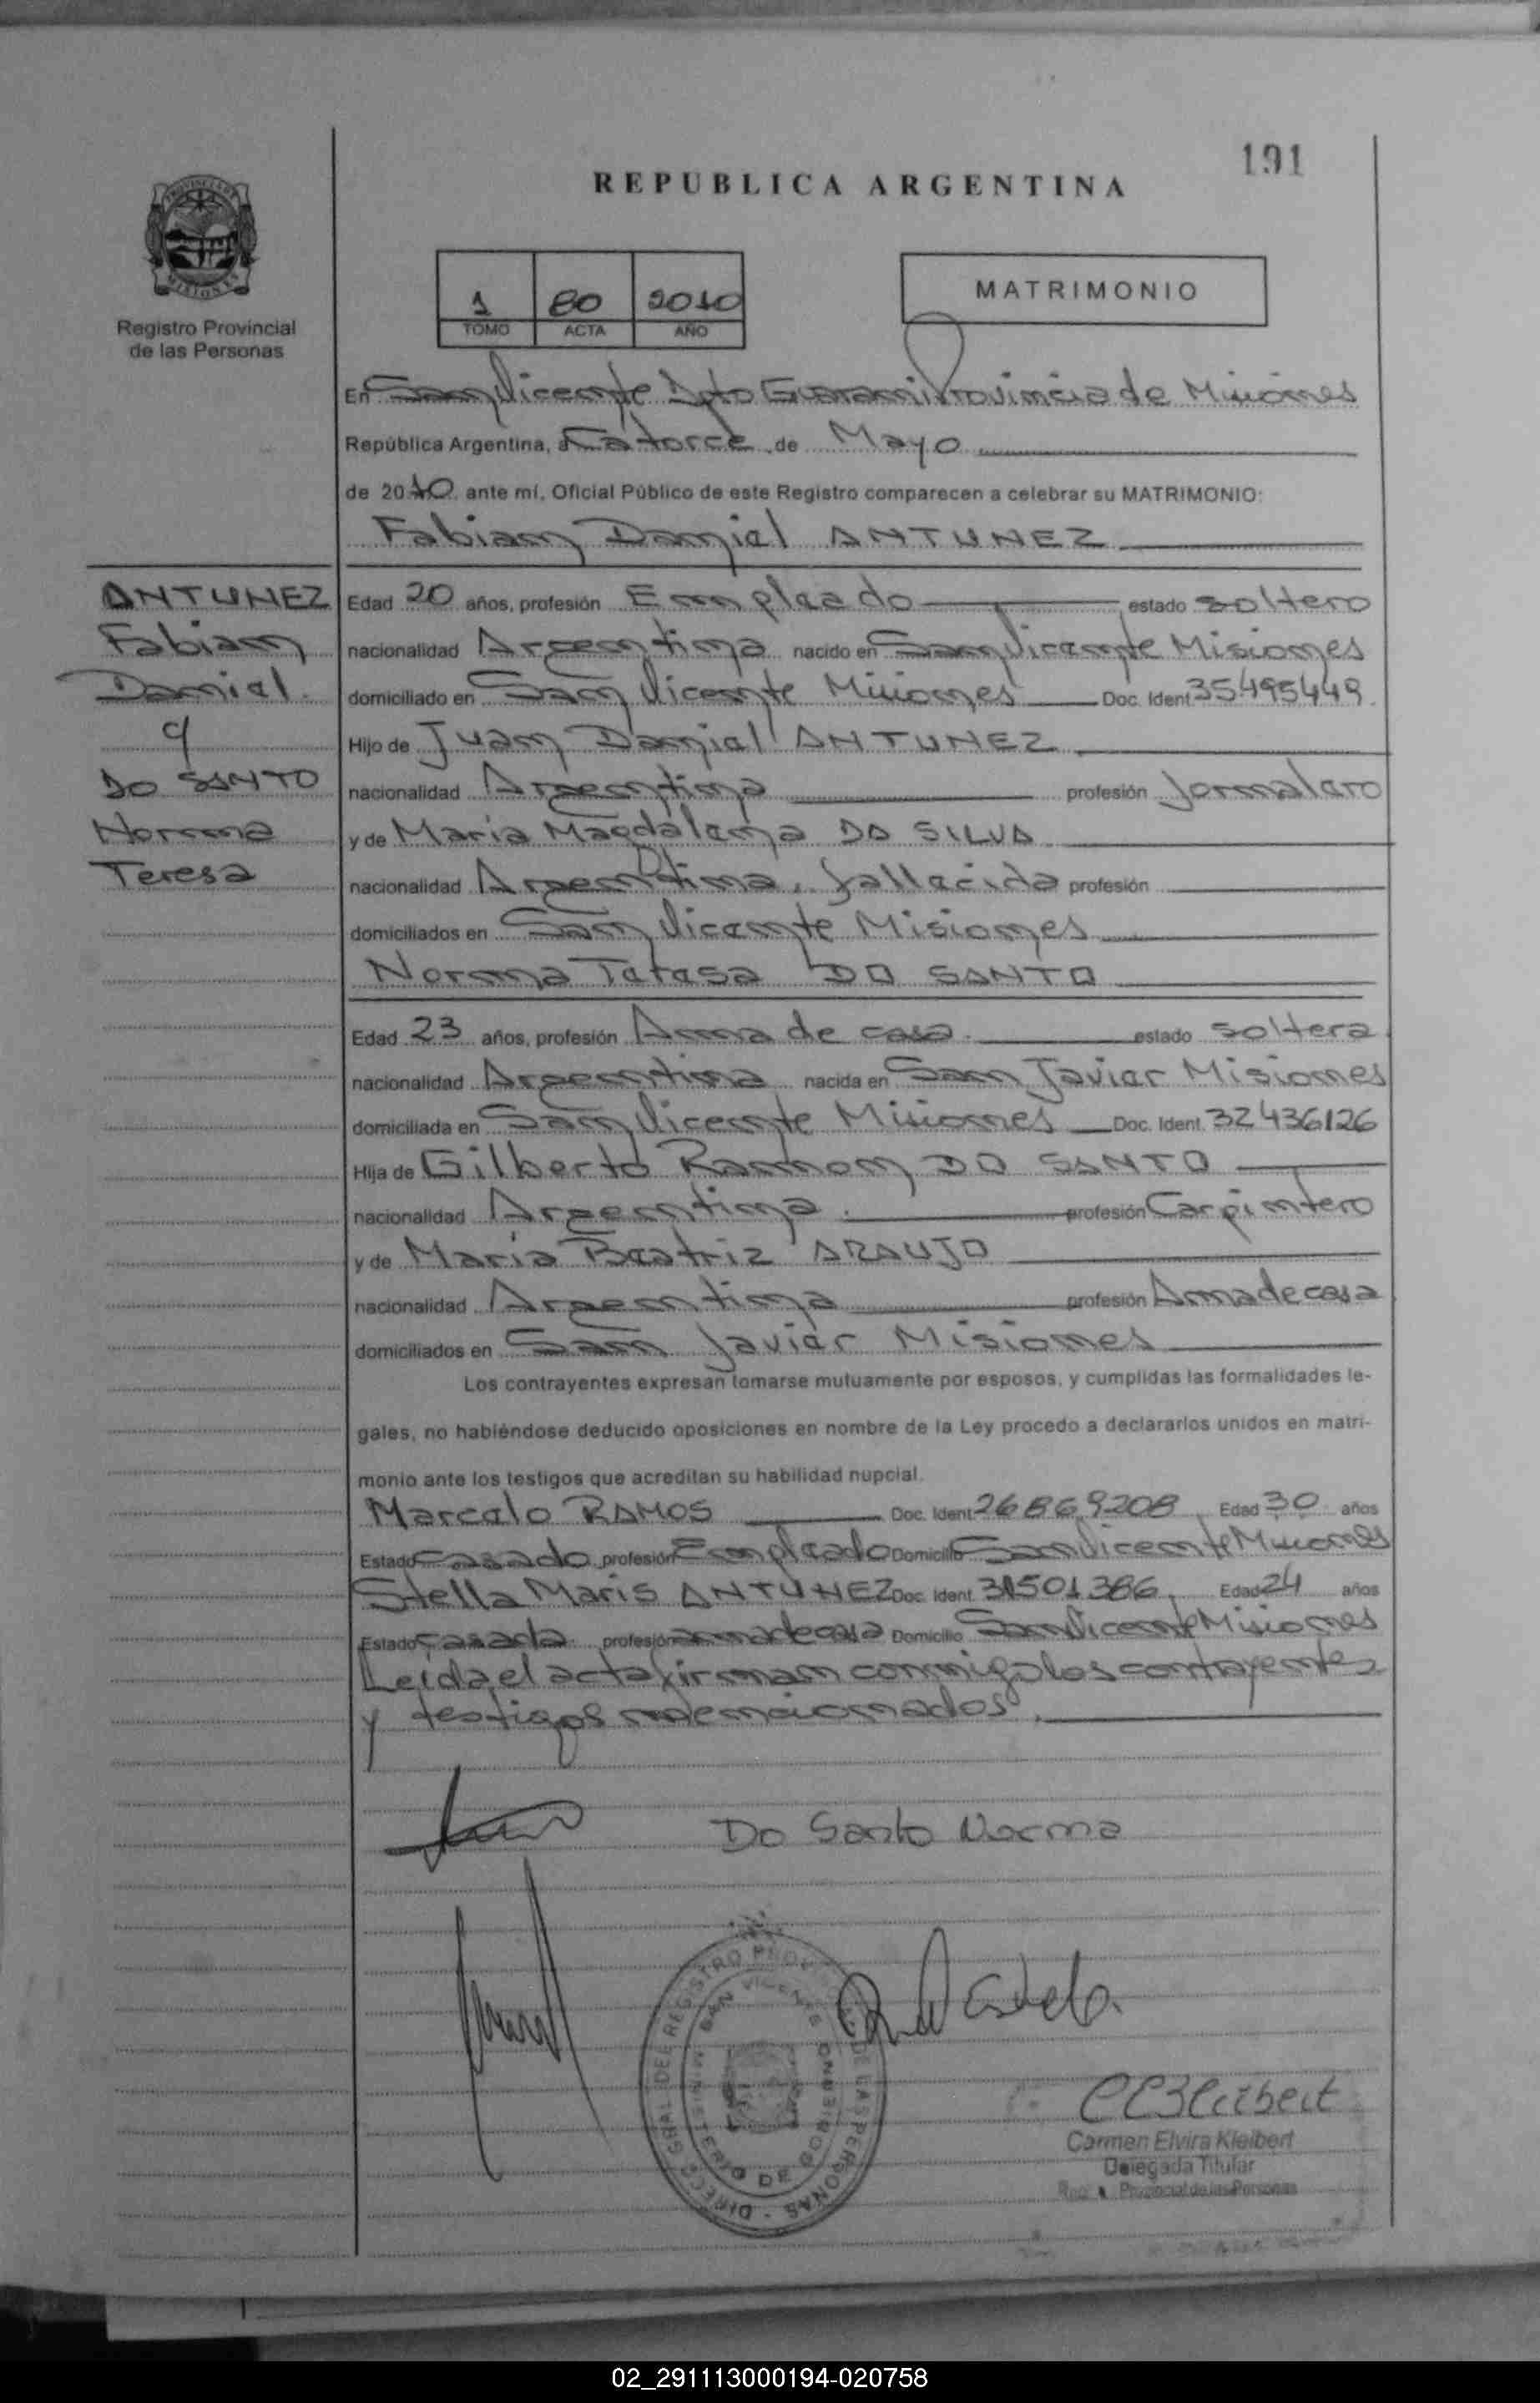 191
REPUBLICA ARGENTINA
PROVINCIA DE
MISIONES
Registro Provincial
de las Personas
1 80 2010
TOMO ACTA AÑO
MATRIMONIO
En San Vicente Dpto Guarani Provincia de Misiones
República Argentina, a Catorce de Mayo
de 2010 ante mí, Oficial Público de este Registro comparecen a celebrar su MATRIMONIO:
Fabian Daniel ANTUNEZ
ANTUNEZ
Fabian
Daniel
y
DO SANTO
Norma
Teresa
Edad 20 años, profesión Empleado estado soltero
nacionalidad Argentina nacido en San Vicente Misiones
domiciliado en San Vicente Misiones Doc. Ident. 35495449
Hijo de Juan Daniel ANTUNEZ
nacionalidad Argentina profesión Jornalero
y de Maria Magdalena DA SILVA
nacionalidad Argentina, fallecida profesión
domiciliados en San Vicente Misiones
Norma Teresa DO SANTO
Edad 23 años, profesión Ama de casa estado soltera
nacionalidad Argentina nacida en San Javier Misiones
domiciliada en San Vicente Misiones Doc. Ident. 32436126
Hija de Gilberto Ramon DO SANTO
nacionalidad Argentina profesión Carpintero
y de Maria Beatriz ARAUJO
nacionalidad Argentina profesión Ama de casa
domiciliados en San Javier Misiones
Los contrayentes expresan tomarse mutuamente por esposos, y cumplidas las formalidades le-
gales, no habiéndose deducido oposiciones en nombre de la Ley procedo a declararlos unidos en matri-
monio ante los testigos que acreditan su habilidad nupcial.
Marcelo RAMOS Doc. Ident 26869208 Edad 30 años
Estado casado profesión Empleado Domicilio San Vicente Misiones
Stella Maris ANTUNEZ Doc. Ident. 31501386, Edad 24 años
Estado casada profesión ama de casa Domicilio San Vicente Misiones
Leida el acta firman conmigo los contrayentes
y testigos mencionados.
Do Santo Norma
DIRECC. GRAL. DEL REGISTRO PROV. DE LAS PERSONAS
SAN VICENTE
MINISTERIO DE GOBIERNO
Carmen Elvira Kleibert
Delegada Titular
Reg. Provincial de las Personas
02_291113000194-020758